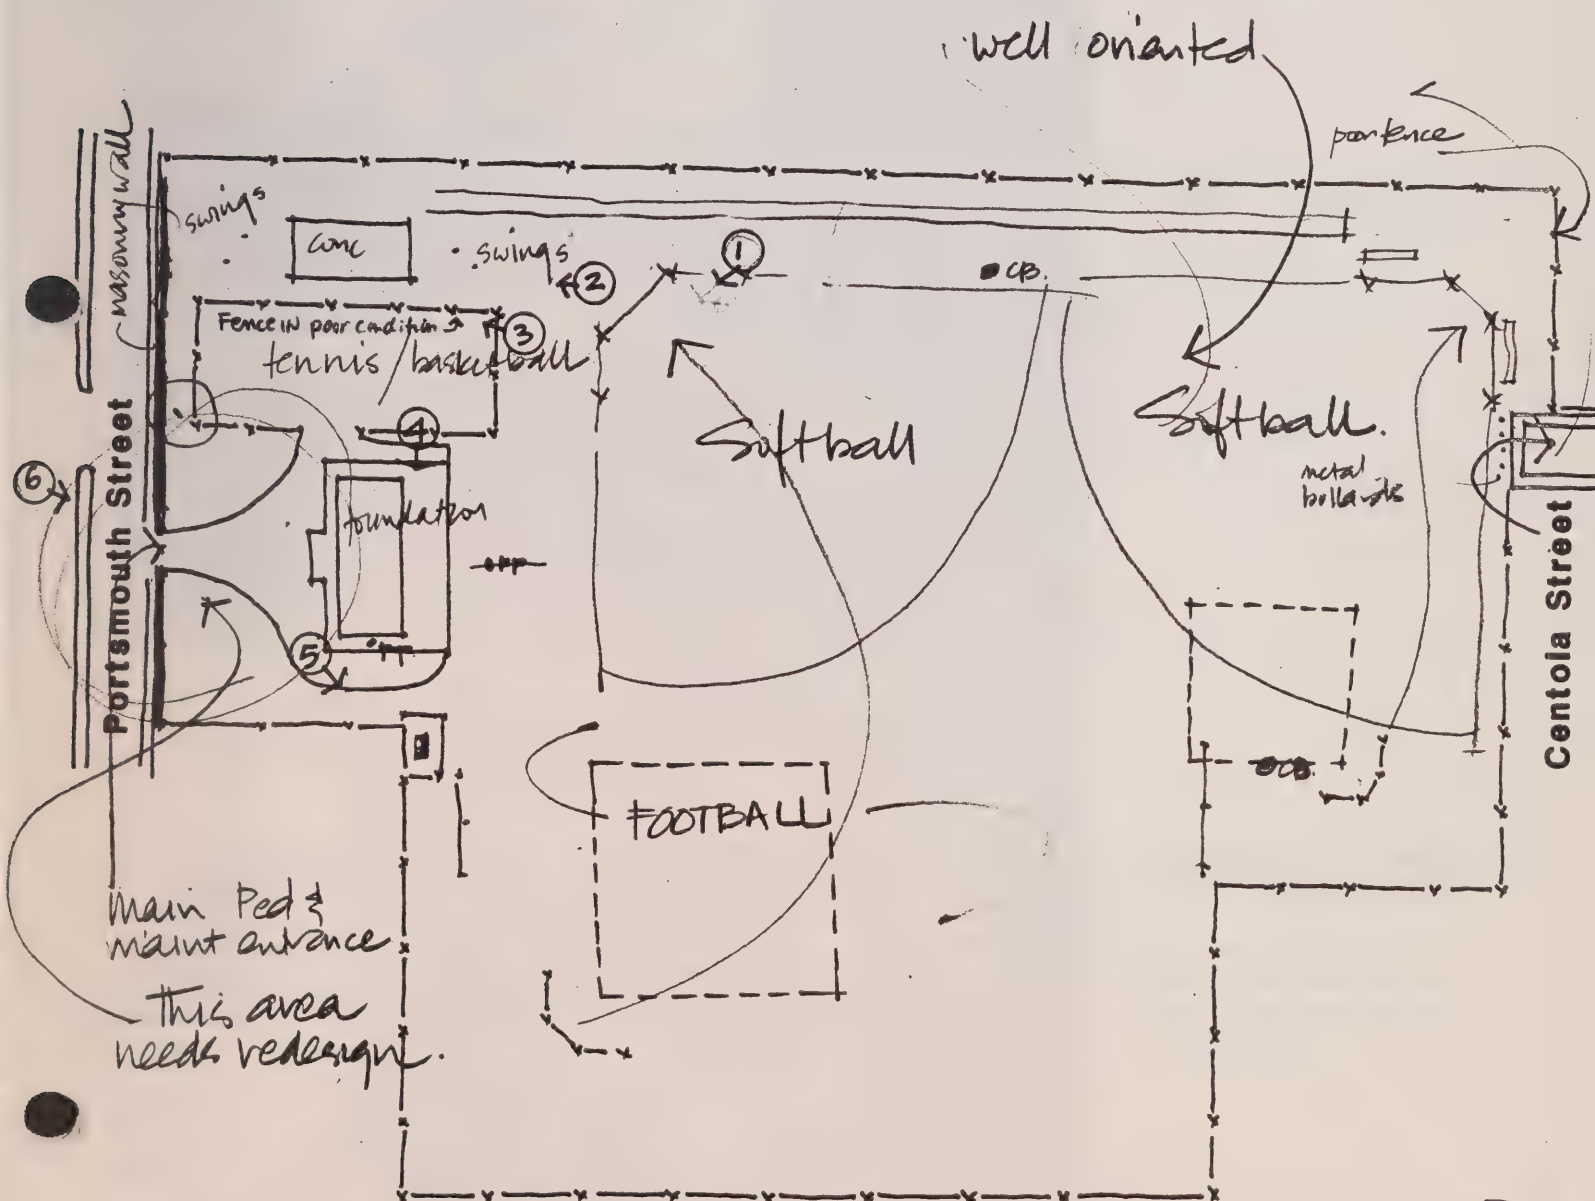 well oriented
poor fence
masonry wall
swings
conc
swings
1
CB.
2
Fence IN poor condition
3
tennis/basketball
4
Softball
Softball.
metal
bollards
6
Portsmouth Street
foundation
Centola Street
5
CB.
FOOTBALL
Main Ped &
maint entrance
This area
needs redesign.